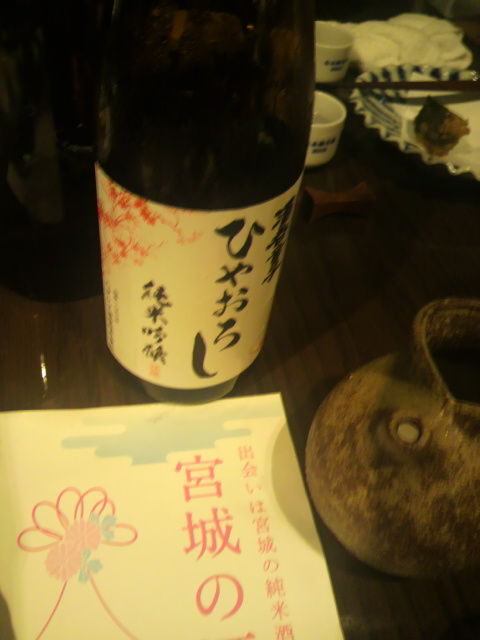 ひやおろし
純米吟醸
出会いは宮城の純米酒
宮城の